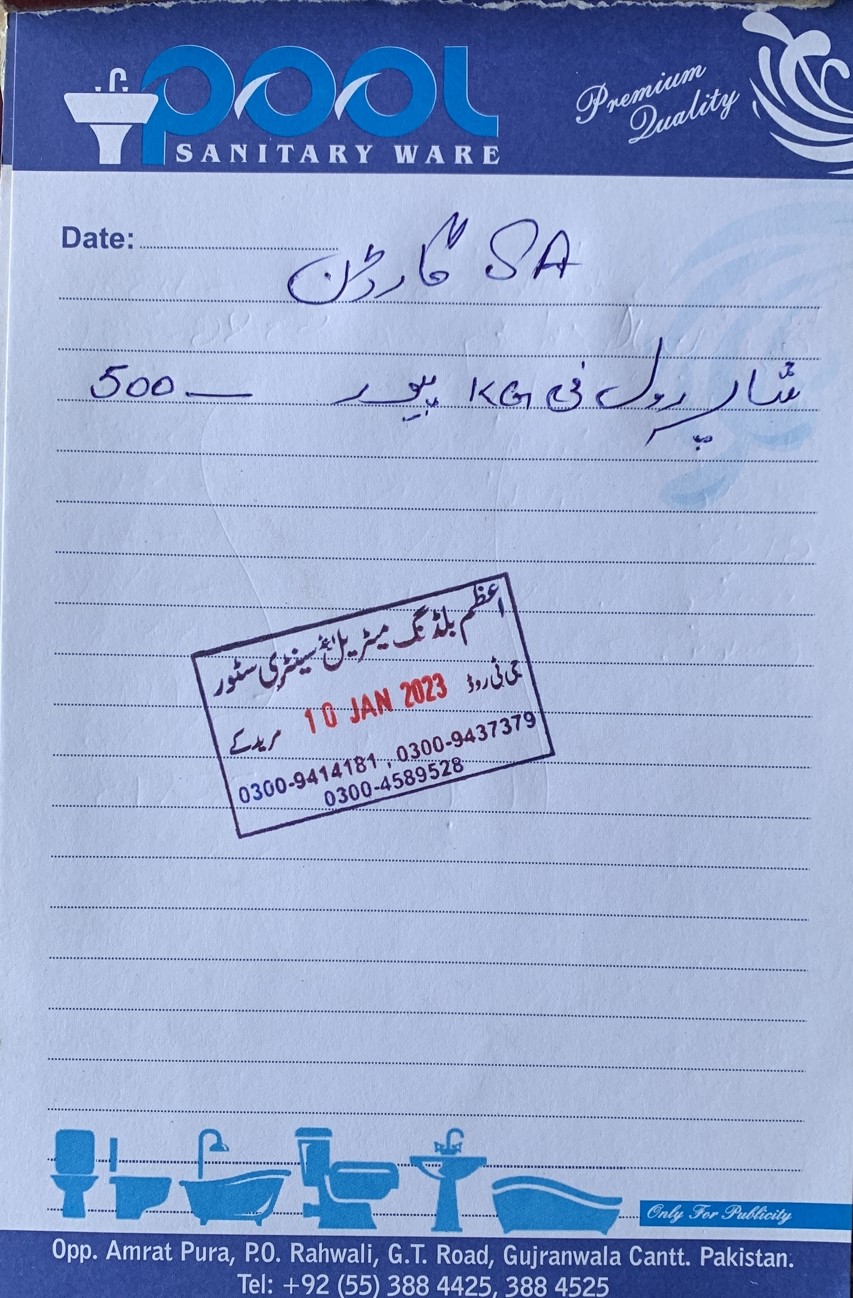 POOL
SANITARY WARE
Premium
Quality
Date:
SA گارڈن
شاپر رول فی KG پیور 500
اعظم بلڈنگ میٹریل اینڈ سینٹری سٹور
جی ٹی روڈ 10 JAN 2023 مریدکے
0300-9414181 , 0300-9437379
0300-4589528
Only For Publicity
Opp. Amrat Pura, P.O. Rahwali, G.T. Road, Gujranwala Cantt. Pakistan.
Tel: +92 (55) 388 4425, 388 4525